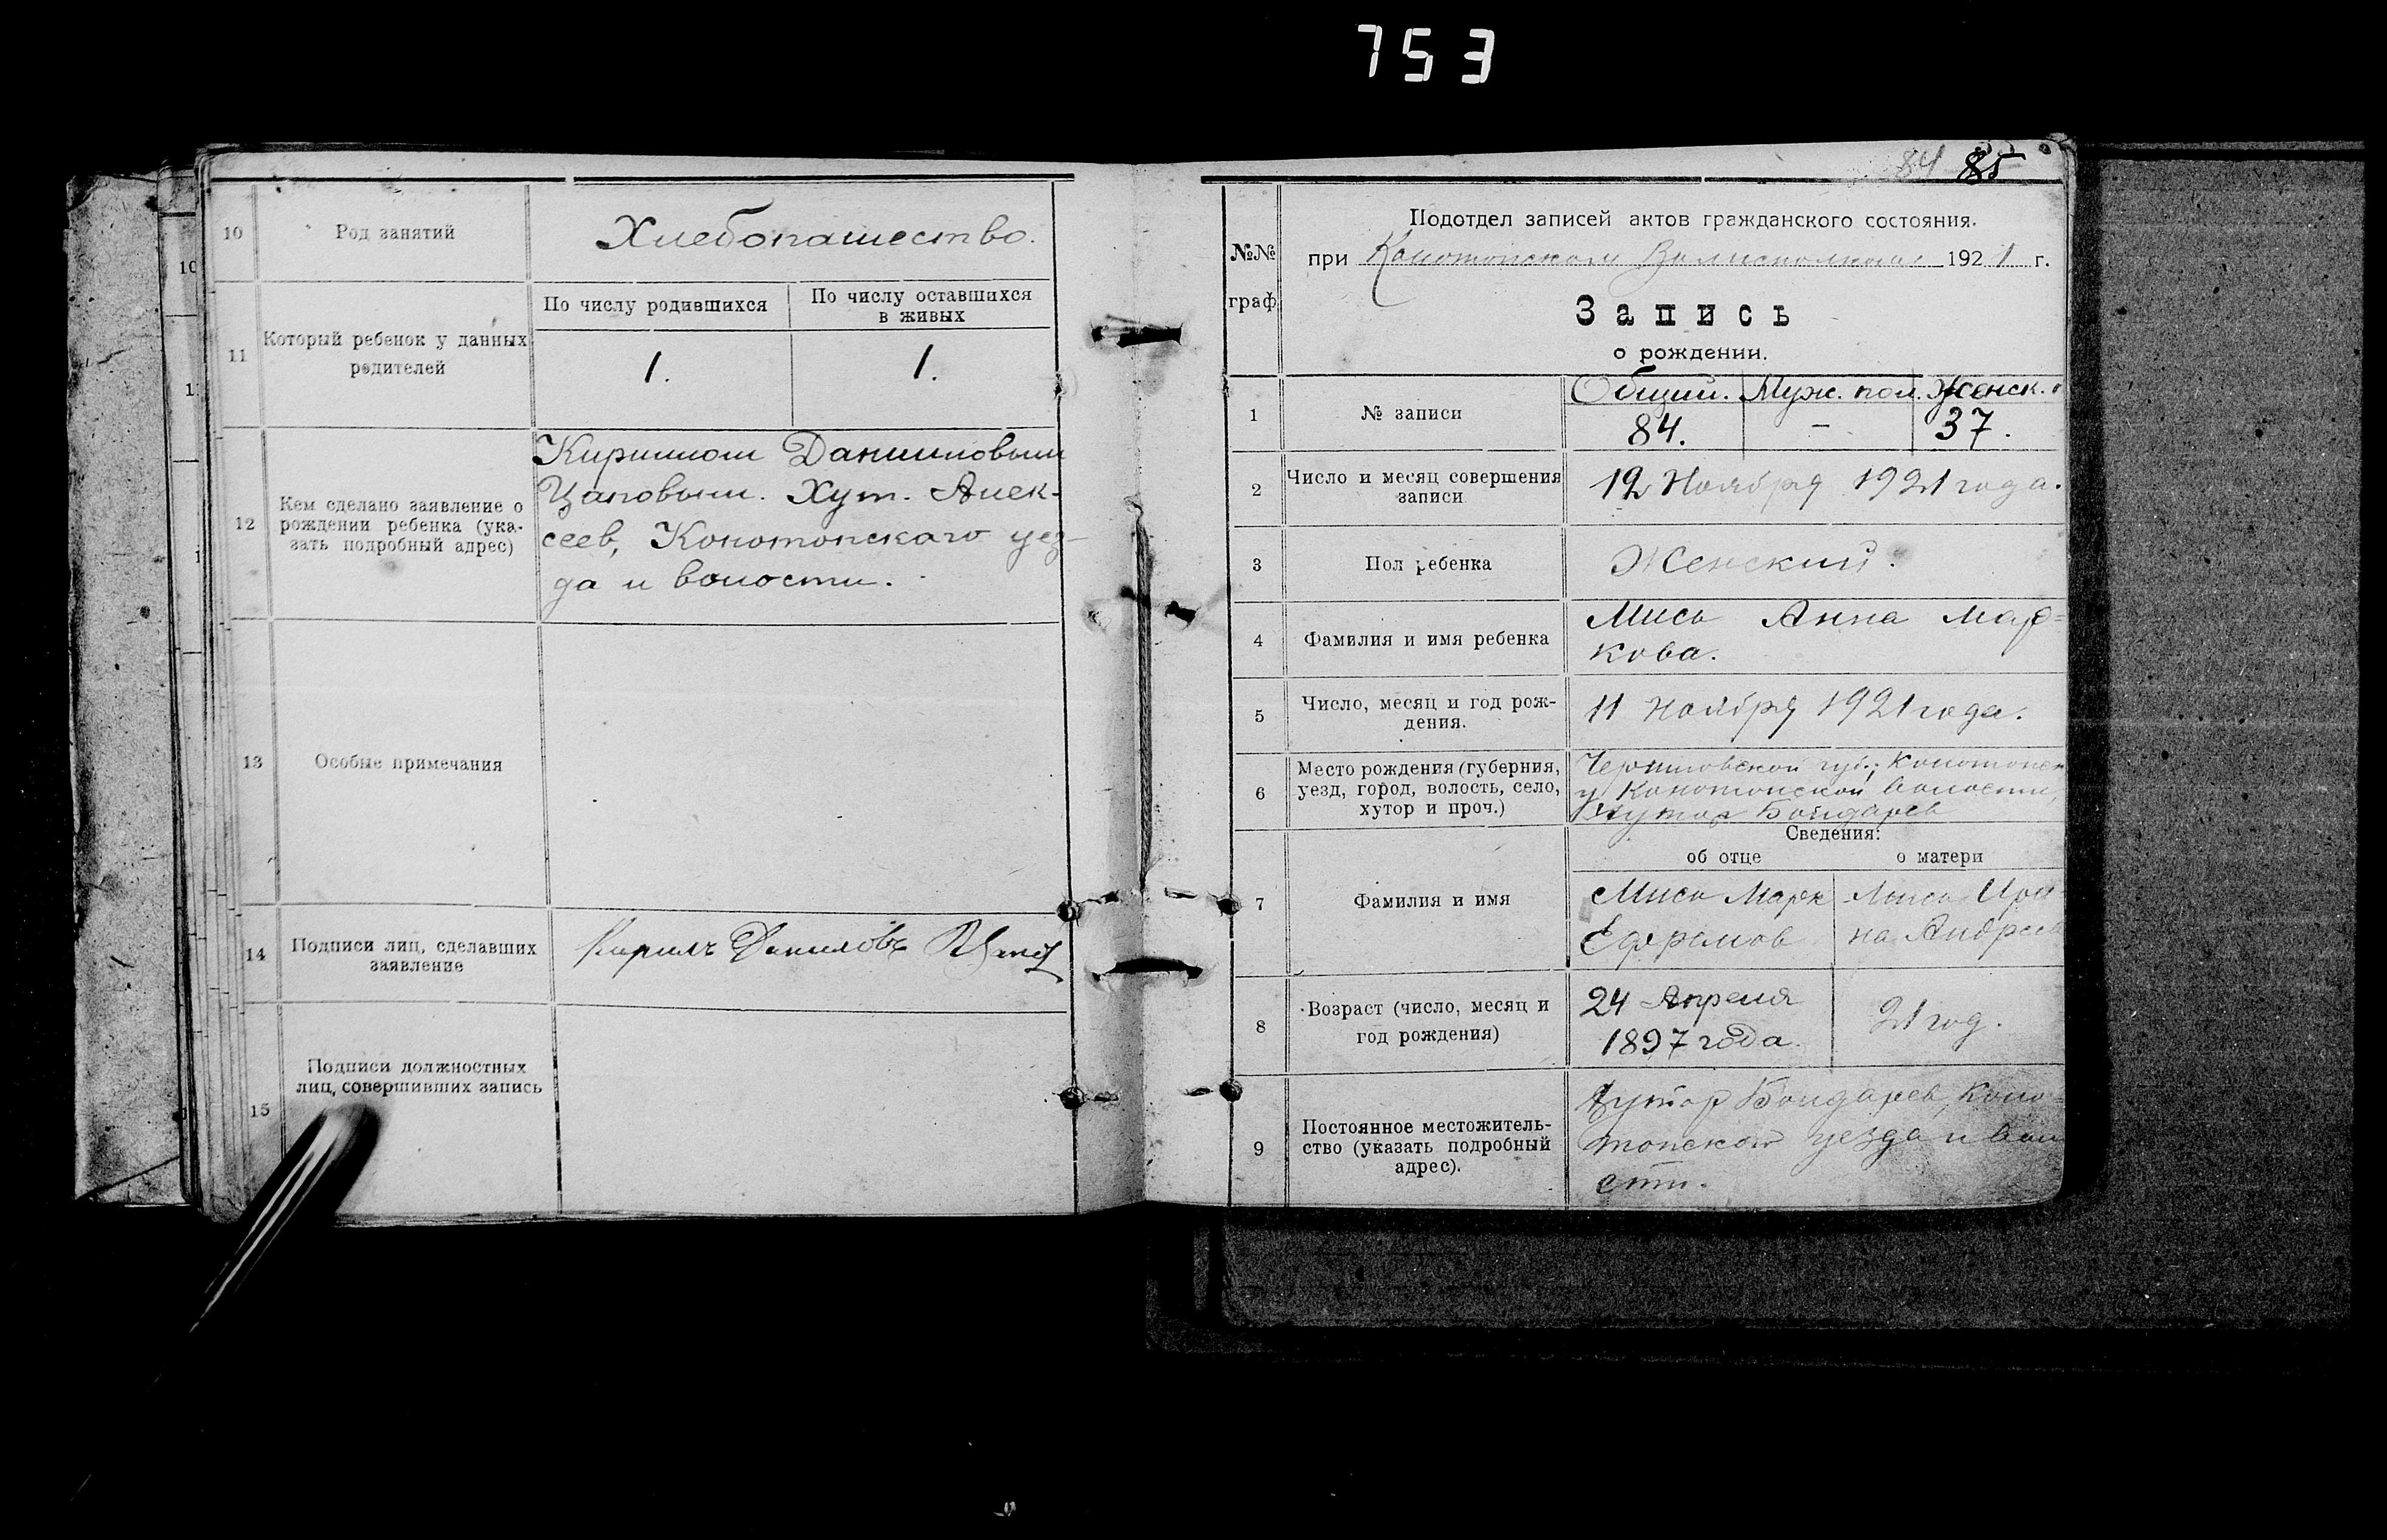 753
10 Род занятий Хлебопашество.
11 Который ребенок у данных родителей
По числу родившихся По числу оставшихся в живых
1. 1.
12 Кем сделано заявление о
рождении ребенка (ука-
зать подробный адрес)
Кириллом Данииловым
Цаповым. Хут. Алек-
сеев, Конотопскаго уез-
да и волости.
13 Особые примечания
14 Подписи лиц, сделавших
заявление
Кирилъ Даниловъ
15 Подписи должностных
лиц, совершивших запись
84 85
№№
граф
Подотдел записей актов гражданского состояния.
при Конотопском Волисполкоме 1921 г.
Запись
о рождении.
1 № записи
Общий. Муж. пол. Женск.
84. – 37.
2 Число и месяц совершения
записи
12 Ноября 1921 года.
3 Пол ребенка Женский.
4 Фамилия и имя ребенка
Мись Анна Мар-
кова.
5 Число, месяц и год рож-
дения.
11 Ноября 1921 года.
6 Место рождения (губерния,
уезд, город, волость, село,
хутор и проч.)
Черниговской губ., Конотопск
у Конотопской волости,
Хутор Бондарев
Сведения:
об отце о матери
7 Фамилия и имя
Мись Марк
Ефремов
Мись Ири-
на Андреев
8 Возраст (число, месяц и
год рождения)
24 Апреля
1897 года.
21 год.
9 Постоянное местожитель-
ство (указать подробный
адрес).
Хутор Бондарев, Коно-
топского уезда и воло
сти.